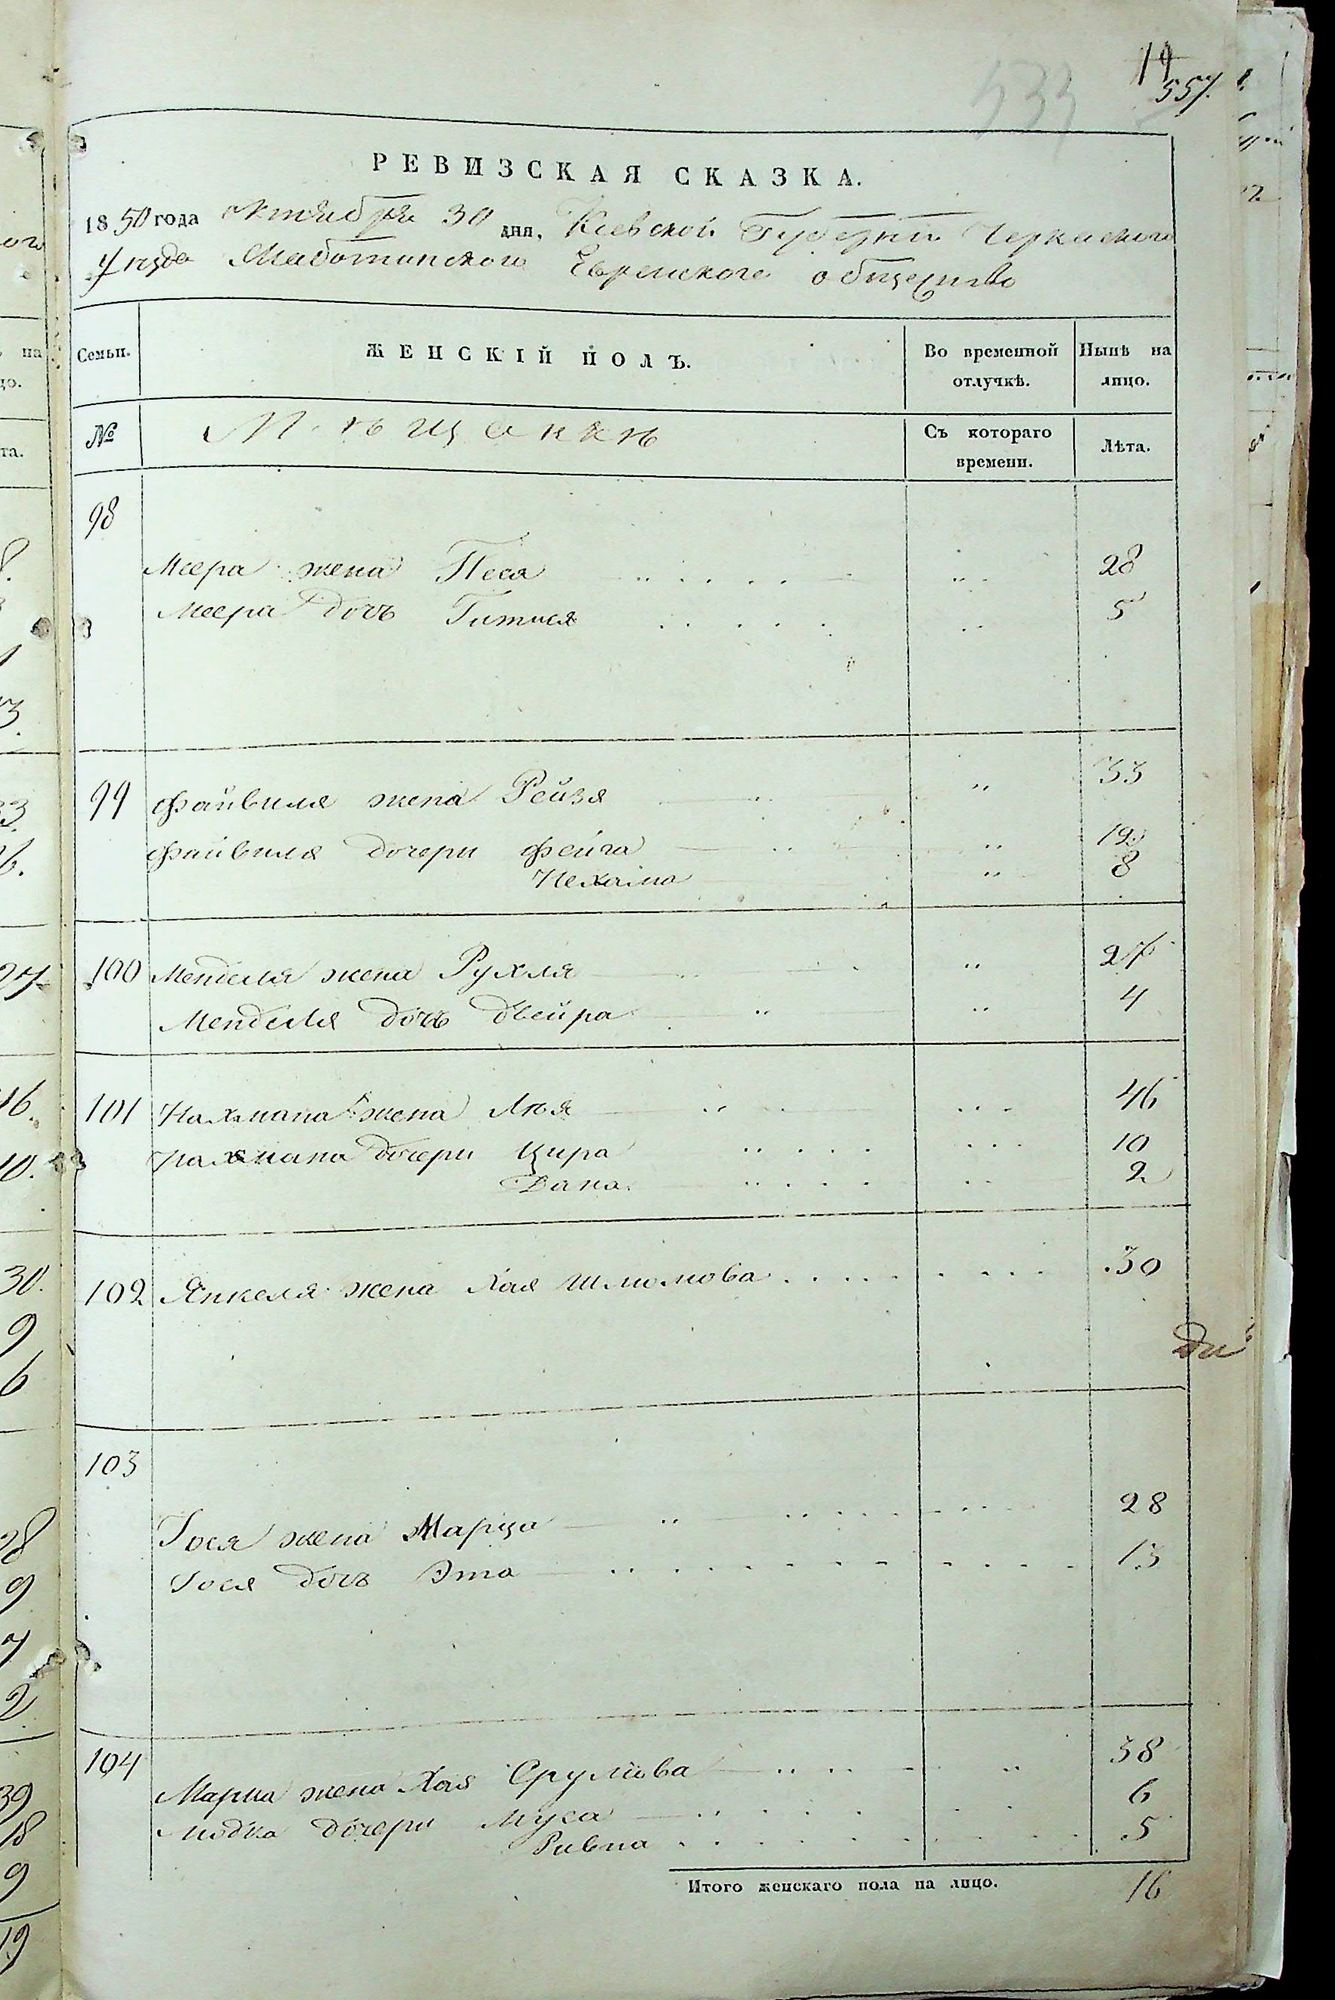 14
557.
533
РЕВИЗСКАЯ СКАЗКА.
1850 года октября 30 дня, Кіевской Губерніи Черкаского
уезда Маботинского Еврейского общество
Семьи.
ЖЕНСКІЙ ПОЛЪ.
Во временной отлучкѣ.
Нынѣ на лицо.
№
Мѣщанкѣ
Съ котораго времени.
Лѣта.
98
Меера жена Песя 28
Меера дочь Гитися 5
99 Файвиля жена Рейзя 33
Файвиля дочери Фейга 19
Нехама 8
100 Менделя жена Рухля 27
Менделя дочь Двейра 4
101 Нахмана жена Лея 46
Нахмана дочери Цира 10
Дана. 2
102 Янкеля жена Хая Шлиомова 30
103
Іося жена Марца 28
Іося дочь Эта 13
104 жена Хая Срулова 38
дочери Муса 6
Ривка 5
Итого женскаго пола на лицо. 16